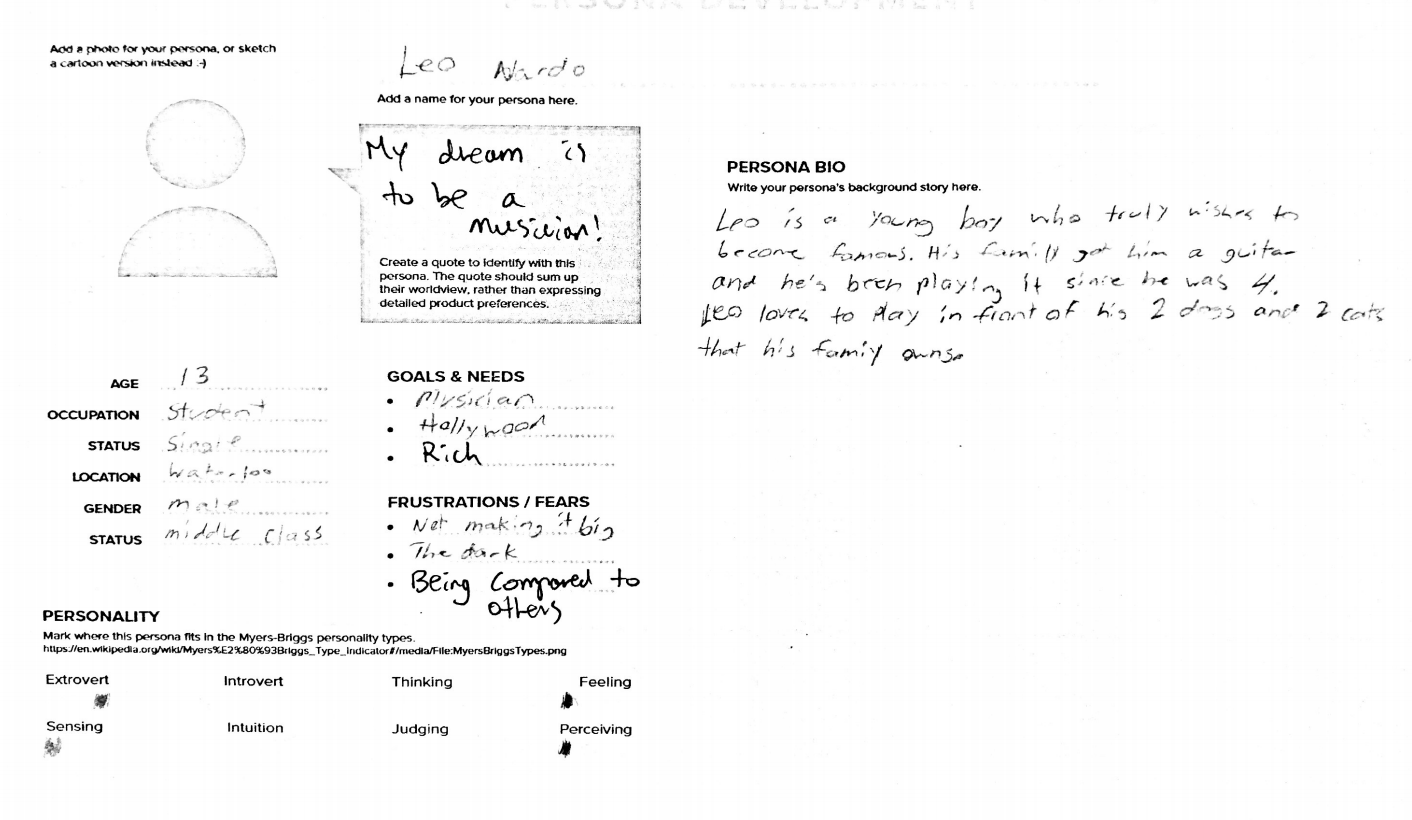 PERSONA DEVELOPMENT
Add a photo for your persona, or sketch
a cartoon version instead :-)
Leo Nardo
Add a name for your persona here.
My dream is
to be a
musician!
Create a quote to identify with this
persona. The quote should sum up
their worldview, rather than expressing
detailed product preferences.
PERSONA BIO
Write your persona's background story here.
Leo is a young boy who truly wishes to
become famous. His family got him a guitar
and he's been playing it since he was 4.
Leo loves to play in front of his 2 dogs and 2 cats
that his famiy owns.
AGE 13
OCCUPATION Student
STATUS Single
LOCATION Waterloo
GENDER male
STATUS middle class
GOALS & NEEDS
• Musician
• Hollywood
• Rich
FRUSTRATIONS / FEARS
• Not making it big
• The dark
• Being Compared to
others
PERSONALITY
Mark where this persona fits in the Myers-Briggs personality types.
https://en.wikipedia.org/wiki/Myers%E2%80%93Briggs_Type_Indicator#/media/File:MyersBriggsTypes.png
Extrovert Introvert Thinking Feeling
Sensing Intuition Judging Perceiving